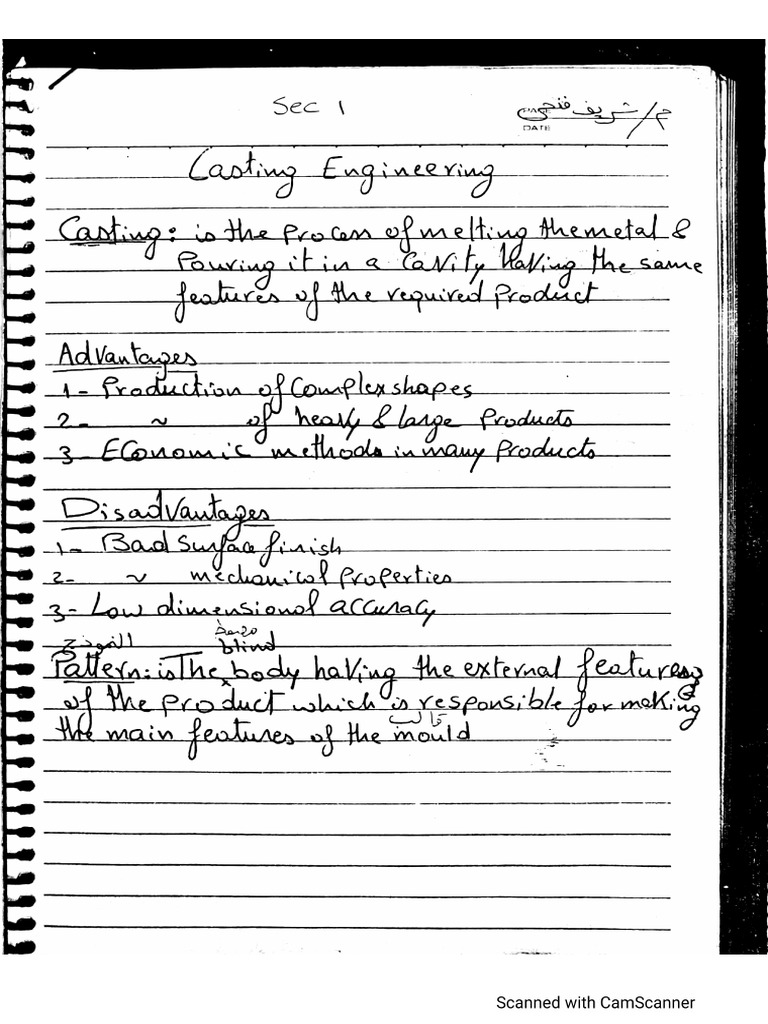 Sec 1
م/ شريف فتحي
DATE
Casting Engineering
Casting: is the process of melting the metal &
Pouring it in a Cavity having the same
features of the required Product
Advantages
1- Production of Complex shapes
2- ~ of heavy & large Products
3- Economic methods in many Products
Disadvantages
1- Bad surface finish
2- ~ mechanical properties
3- Low dimensional accuracy
النموذج مصمط
blind
Pattern: is The body having the external features
of the product which is responsible for making
قالب
the main features of the mould
Scanned with CamScanner